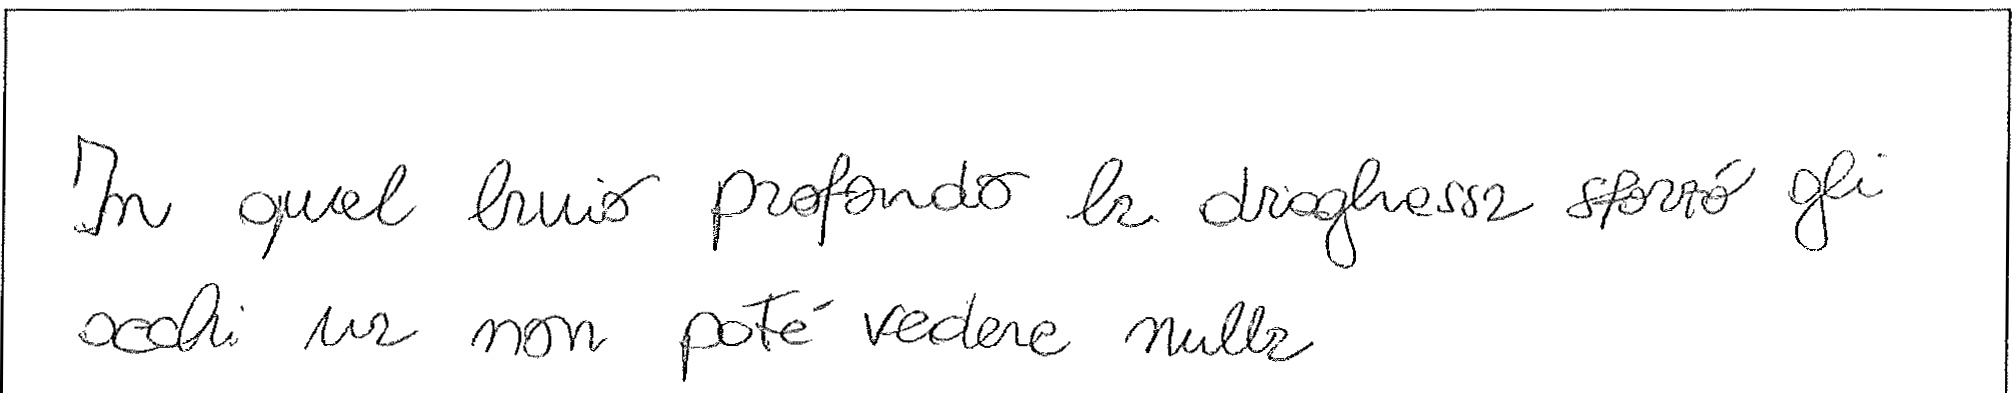 In quel buio profondo la draghessa sforzó gli
occhi ma non poté vedere nulla